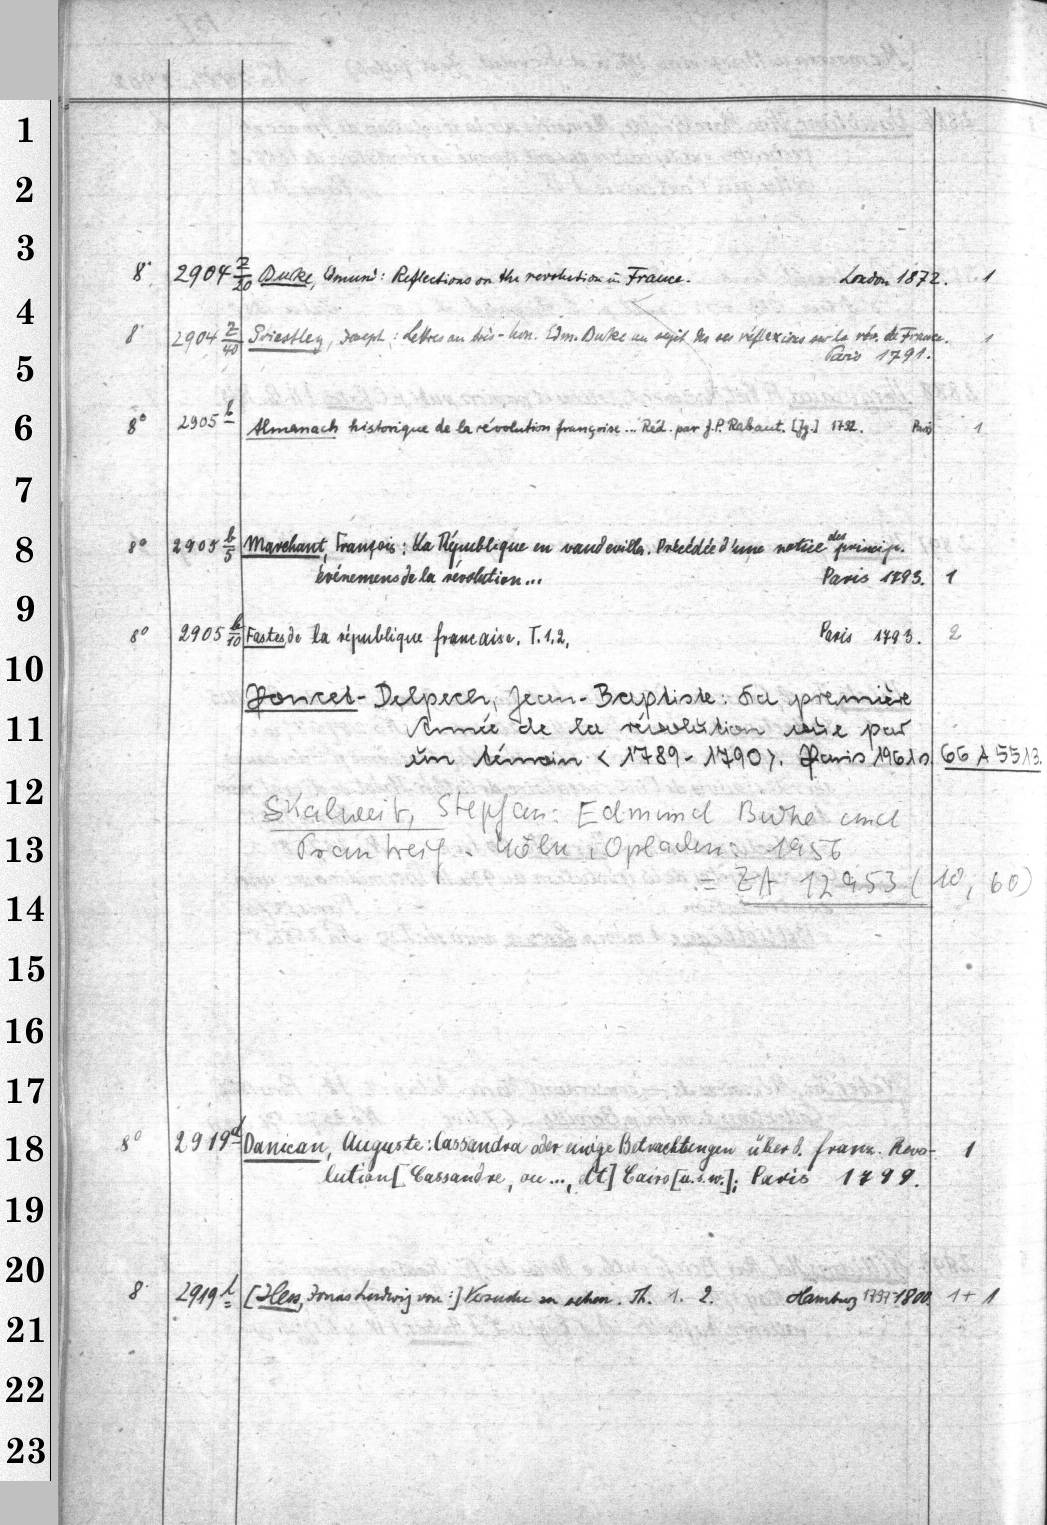 1
2
3
8° 2904 z/20 Burke, Edmund: Reflections on the revolution in France. London 1872. 1
4
8° 2904 z/40 Priestley, Joseph: Lettres au très-hon. Edm. Burke au sujet de ses réflexions sur la rév. de France.
Paris 1791. 1
5
6
8° 2905 b Almanach historique de la révolution françoise... Réd. par J. P. Rabaut. [Jg.] 1792. Paris 1
7
8
8° 2905 b/5 Marchant, François: La République en vaudevilles. Précédée d'une notice des princip.
événemens de la révolution... Paris 1793. 1
9
8° 2905 b/10 Fastes de la république française. T. 1.2. Paris 1793. 2
10
Poncet-Delpech, Jean-Baptiste: La première
11
Année de la révolution vue par
un témoin <1789-1790>. Paris 1961 66 A 5513.
12
Skalweit, Stephan: Edmund Burke und
13
Frankreich. Köln, Opladen: 1956
= ZA 12953 (10, 60)
14
15
16
17
18
8° 2919 d Danican, Auguste: Cassandra oder einige Betrachtungen über d. franz. Revo-
lution [Cassandre, ou..., dt] Cairo [u.s.w.]; Paris 1799. 1
19
20
8° 2919 [Hess, Jonas Ludwig von:] Versuche zu sehen. Th. 1. 2. Hamburg 1797-1800 1+1
21
22
23